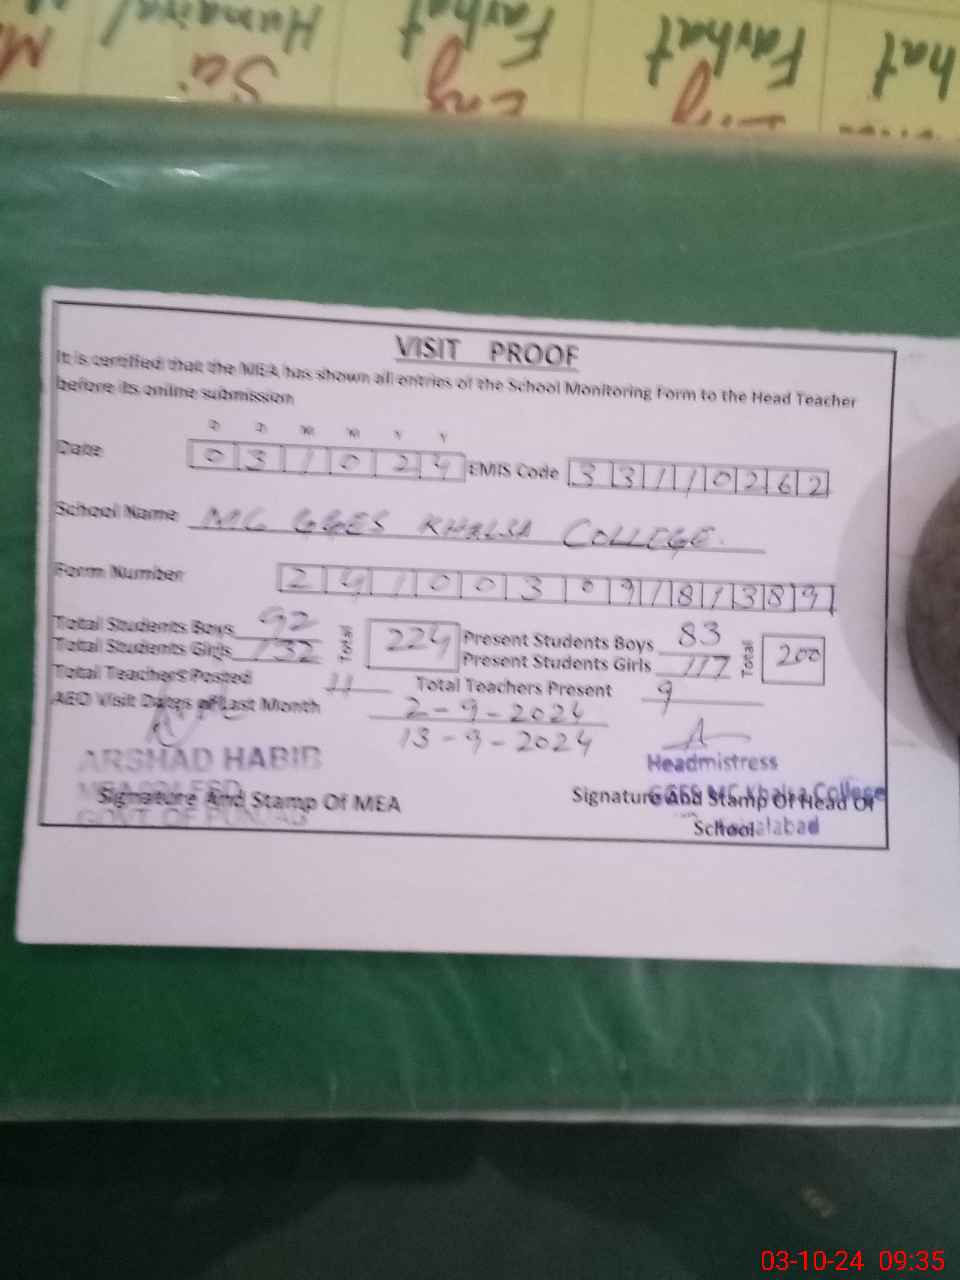 Humaira/ Farhat Farhat hat
Sci Eng Eng
VISIT PROOF
It is certified that the MEA has shown all entries of the School Monitoring Form to the Head Teacher
before its online submission
D D M M Y Y
Date 0 3 1 0 2 4 EMIS Code 3 3 1 1 0 2 6 2
School Name MC GGES KHALSA COLLEGE.
Form Number 2 4 1 0 0 3 0 9 1 8 1 3 8 9
Total Students Boys 92 Total 224 Present Students Boys 83 Total 200
Total Students Girls 132 Present Students Girls 117
Total Teachers Posted 11 Total Teachers Present 9
AEO Visit Dates of Last Month 2-9-2024
13-9-2024
ARSHAD HABIB Headmistress
Signature And Stamp Of MEA Signature And Stamp Of Head Of
GOVT. OF PUNJAB School
MC Khalsa College
03-10-24 09:35